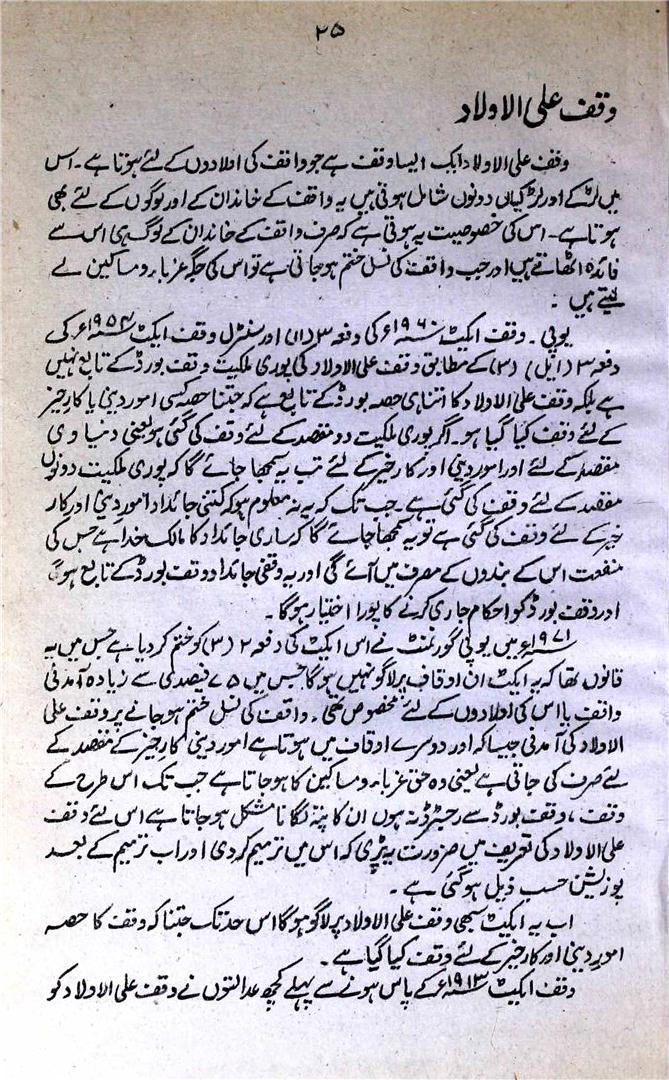 ۲۵
وقف علی الاولاد
وقف علی الاولاد ایک ایسا وقف ہے جو واقف کی اولادوں کے لئے ہوتا ہے۔ اس
میں لڑکے اور لڑکیاں دونوں شامل ہوتی ہیں یہ واقف کے خاندان کے اور لوگوں کے لئے بھی
ہوتا ہے۔ اس کی خصوصیت یہ ہوتی ہے کہ صرف واقف کے خاندان کے لوگ ہی اس سے
فائدہ اٹھاتے ہیں اور جب واقف کی نسل ختم ہو جاتی ہے تو اس کی جگہ غرباء و مساکین لے
لیتے ہیں۔
یوپی۔ وقف ایکٹ ۱۹۶۰ء کی دفعہ ۳ (۱۱) اور سنٹرل وقف ایکٹ ۱۹۵۴ء کی
دفعہ ۳ (ایل) (۳) کے مطابق وقف علی الاولاد کی پوری ملکیت وقف بورڈ کے تابع نہیں
ہے بلکہ وقف علی الاولاد کا اتنا ہی حصہ بورڈ کے تابع ہے کہ جتنا حصہ کسی امور دینی یا کار خیر
کے لئے وقف کیا گیا ہو۔ اگر پوری ملکیت دو مقصد کے لئے وقف کی گئی ہو یعنی دنیاوی
مقصد کے لئے اور امور دینی اور کار خیر کے لئے تب یہ سمجھا جائے گا کہ پوری ملکیت دونوں
مقصد کے لئے وقف کی گئی ہے۔ جب تک کہ یہ نہ معلوم ہو کہ کتنی جائداد امور دینی اور کار
خیر کے لئے وقف کی گئی ہے تو یہ سمجھا جائے گا کہ ساری جائداد کا مالک خدا ہے جس کی
منفعت اس کے بندوں کے مصرف میں آئے گی اور یہ وقفی جائداد وقف بورڈ کے تابع ہوگی
اور وقف بورڈ کو احکام جاری کرنے کا پورا اختیار ہوگا۔
۱۹۷۱ء میں یوپی گورنمنٹ نے اس ایکٹ کی دفعہ ۲ (۳) کو ختم کر دیا ہے جس میں یہ
قانون تھا کہ یہ ایکٹ ان اوقاف پر لاگو نہیں ہوگا جس میں ۷۵ فیصدی سے زیادہ آمدنی
واقف یا اس کی اولادوں کے لئے مخصوص تھی۔ واقف کی نسل ختم ہو جانے پر وقف علی
الاولاد کی آمدنی جیسا کہ اور دوسرے اوقاف میں ہوتا ہے امور دینی کار خیر کے مقصد کے
لئے صرف کی جاتی ہے یعنی وہ حق غرباء و مساکین کا ہو جاتا ہے جب تک اس طرح کے
وقف، وقف بورڈ سے رجسٹرڈ نہ ہوں ان کا پتہ لگانا مشکل ہو جاتا ہے اس لئے وقف
علی الاولاد کی تعریف میں ضرورت یہ پڑی کہ اس میں ترمیم کر دی اور اب ترمیم کے بعد
پوزیشن حسب ذیل ہو گئی ہے۔
اب یہ ایکٹ سبھی وقف علی الاولاد پر لاگو ہوگا اس حد تک جتنا کہ وقف کا حصہ
امور دینی اور کار خیر کے لئے وقف کیا گیا ہے۔
وقف ایکٹ ۱۹۱۳ء کے پاس ہونے سے پہلے کچھ عدالتوں نے وقف علی الاولاد کو